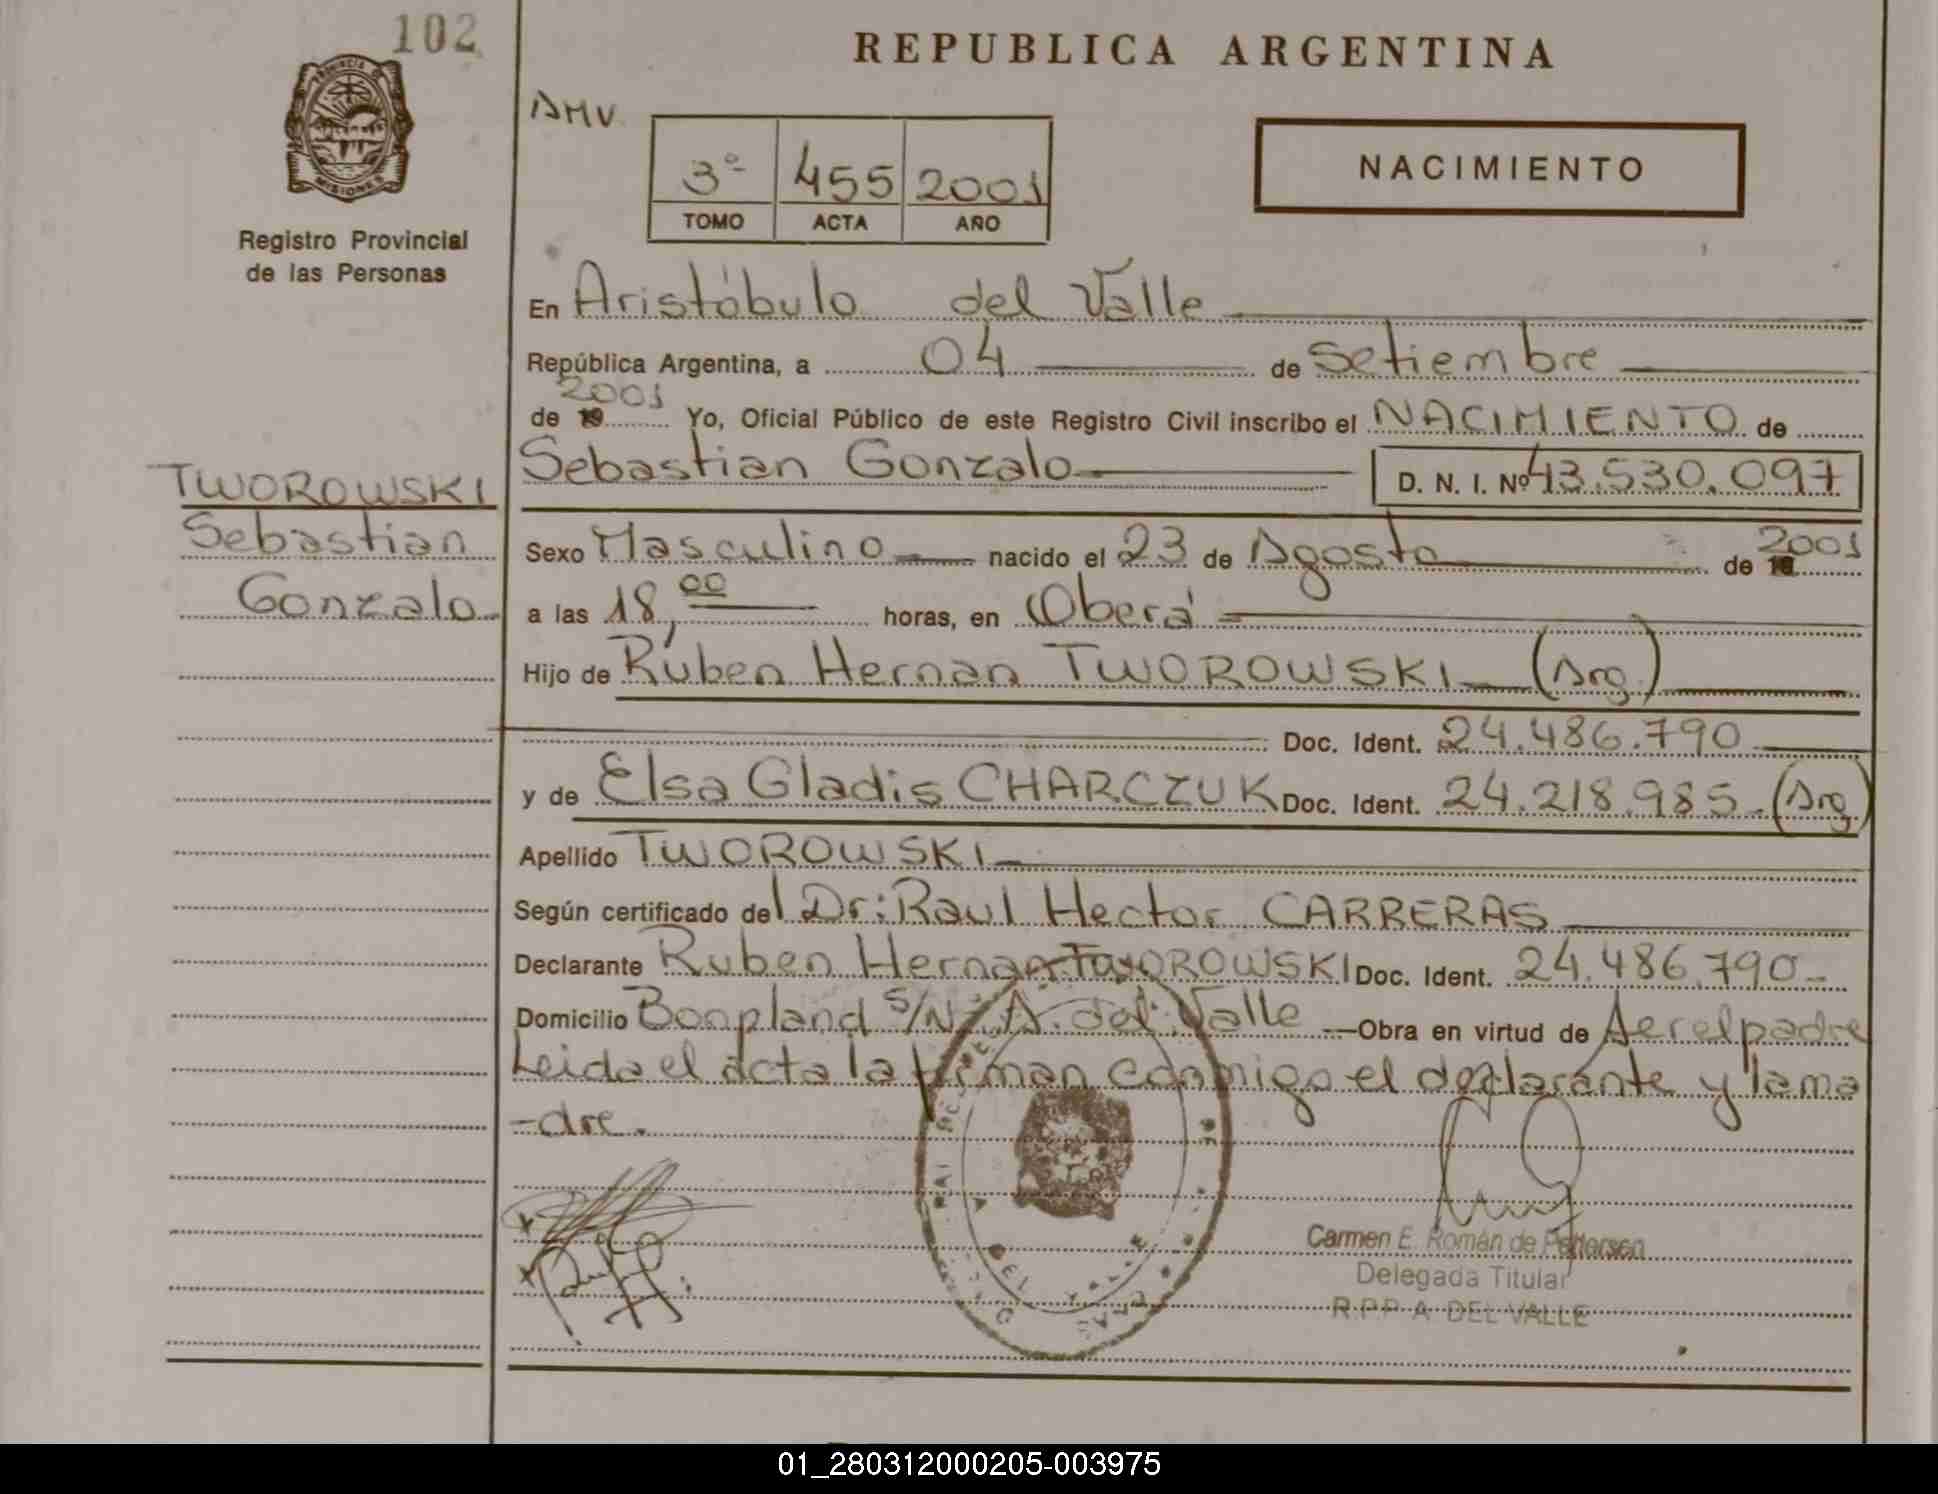 102
PROVINCIA DE
MISIONES
Registro Provincial
de las Personas
REPUBLICA ARGENTINA
AMV
3º 455 2001
TOMO ACTA AÑO
NACIMIENTO
En Aristóbulo del Valle
República Argentina, a 04 de Setiembre
2001
de 19 Yo, Oficial Público de este Registro Civil inscribo el NACIMIENTO de
Sebastian Gonzalo D. N. I. Nº 43.530.097
TWOROWSKI
Sebastian
Gonzalo
Sexo Masculino nacido el 23 de Agosto de 2001
a las 18,00 horas, en Oberá
Hijo de Rúben Hernan TWOROWSKI (Arg.)
Doc. Ident. 24.486.790
y de Elsa Gladis CHARCZUK Doc. Ident. 24.218.985 (Arg)
Apellido TWOROWSKI
Según certificado del Dr: Raul Hector CARRERAS
Declarante Ruben Hernan TWOROWSKI Doc. Ident. 24.486.790
Domicilio Bonpland S/N. A. del Valle Obra en virtud de ser el padre
Leida el acta la firman conmigo el declarante y la ma
-dre.
DEL VALLE
Carmen E. Román de Pettersen
Delegada Titular
R.P.P. A. DEL VALLE
01_280312000205-003975